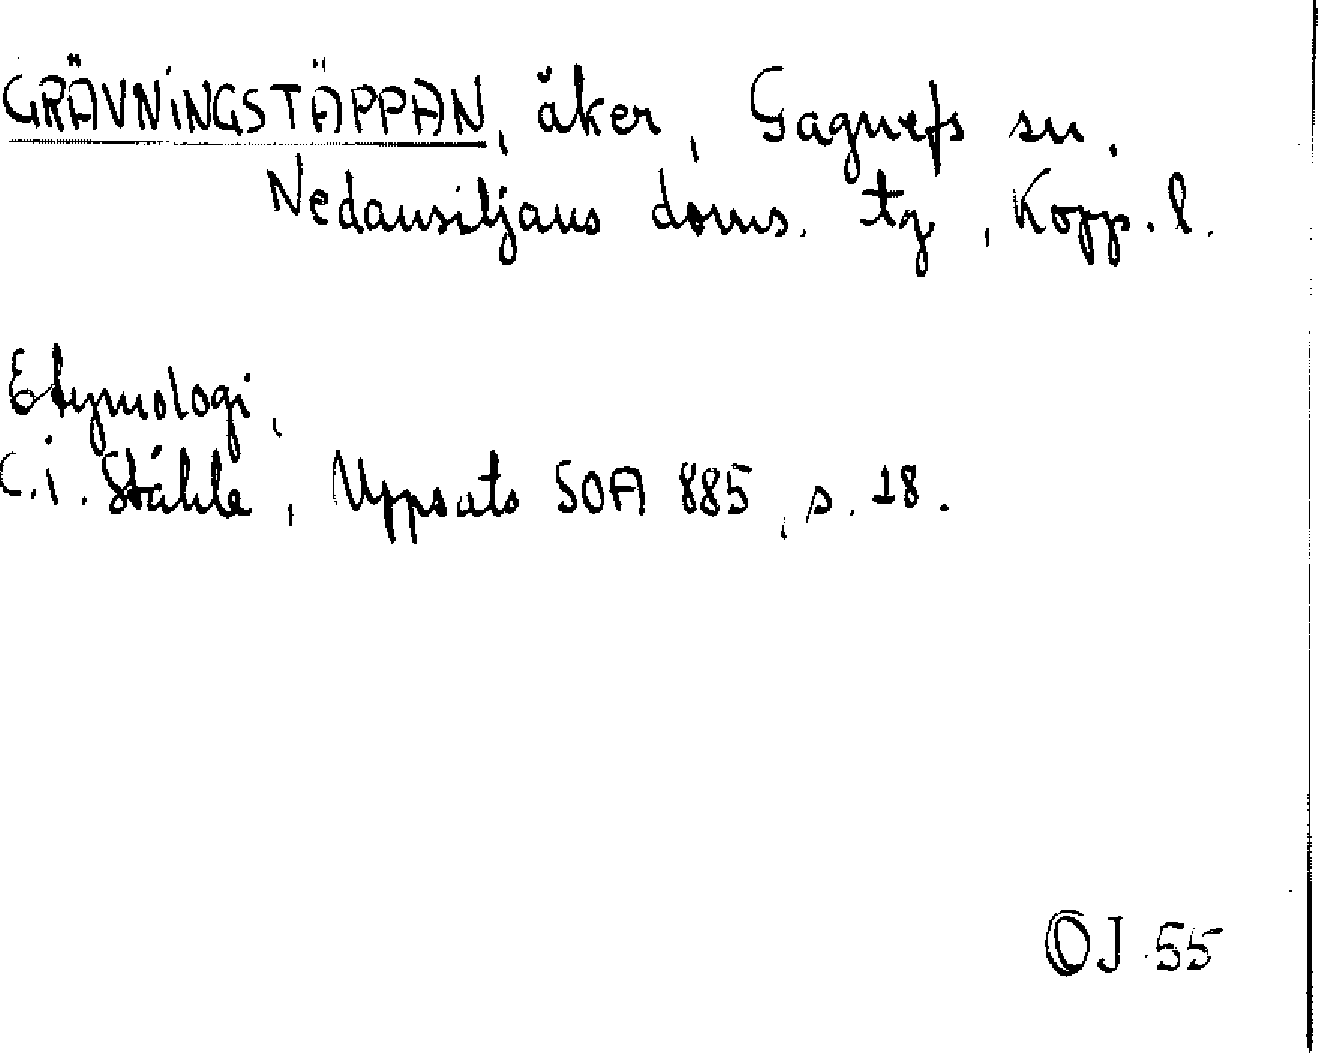 GRÄVNINGSTÄPPAN, åker, Gagnefs sn.
Nedansiljans doms. tg, Kopp. l.
Etymologi,
C.i. Ståhle, Uppsats SOA 885, s. 18.
OJ 55